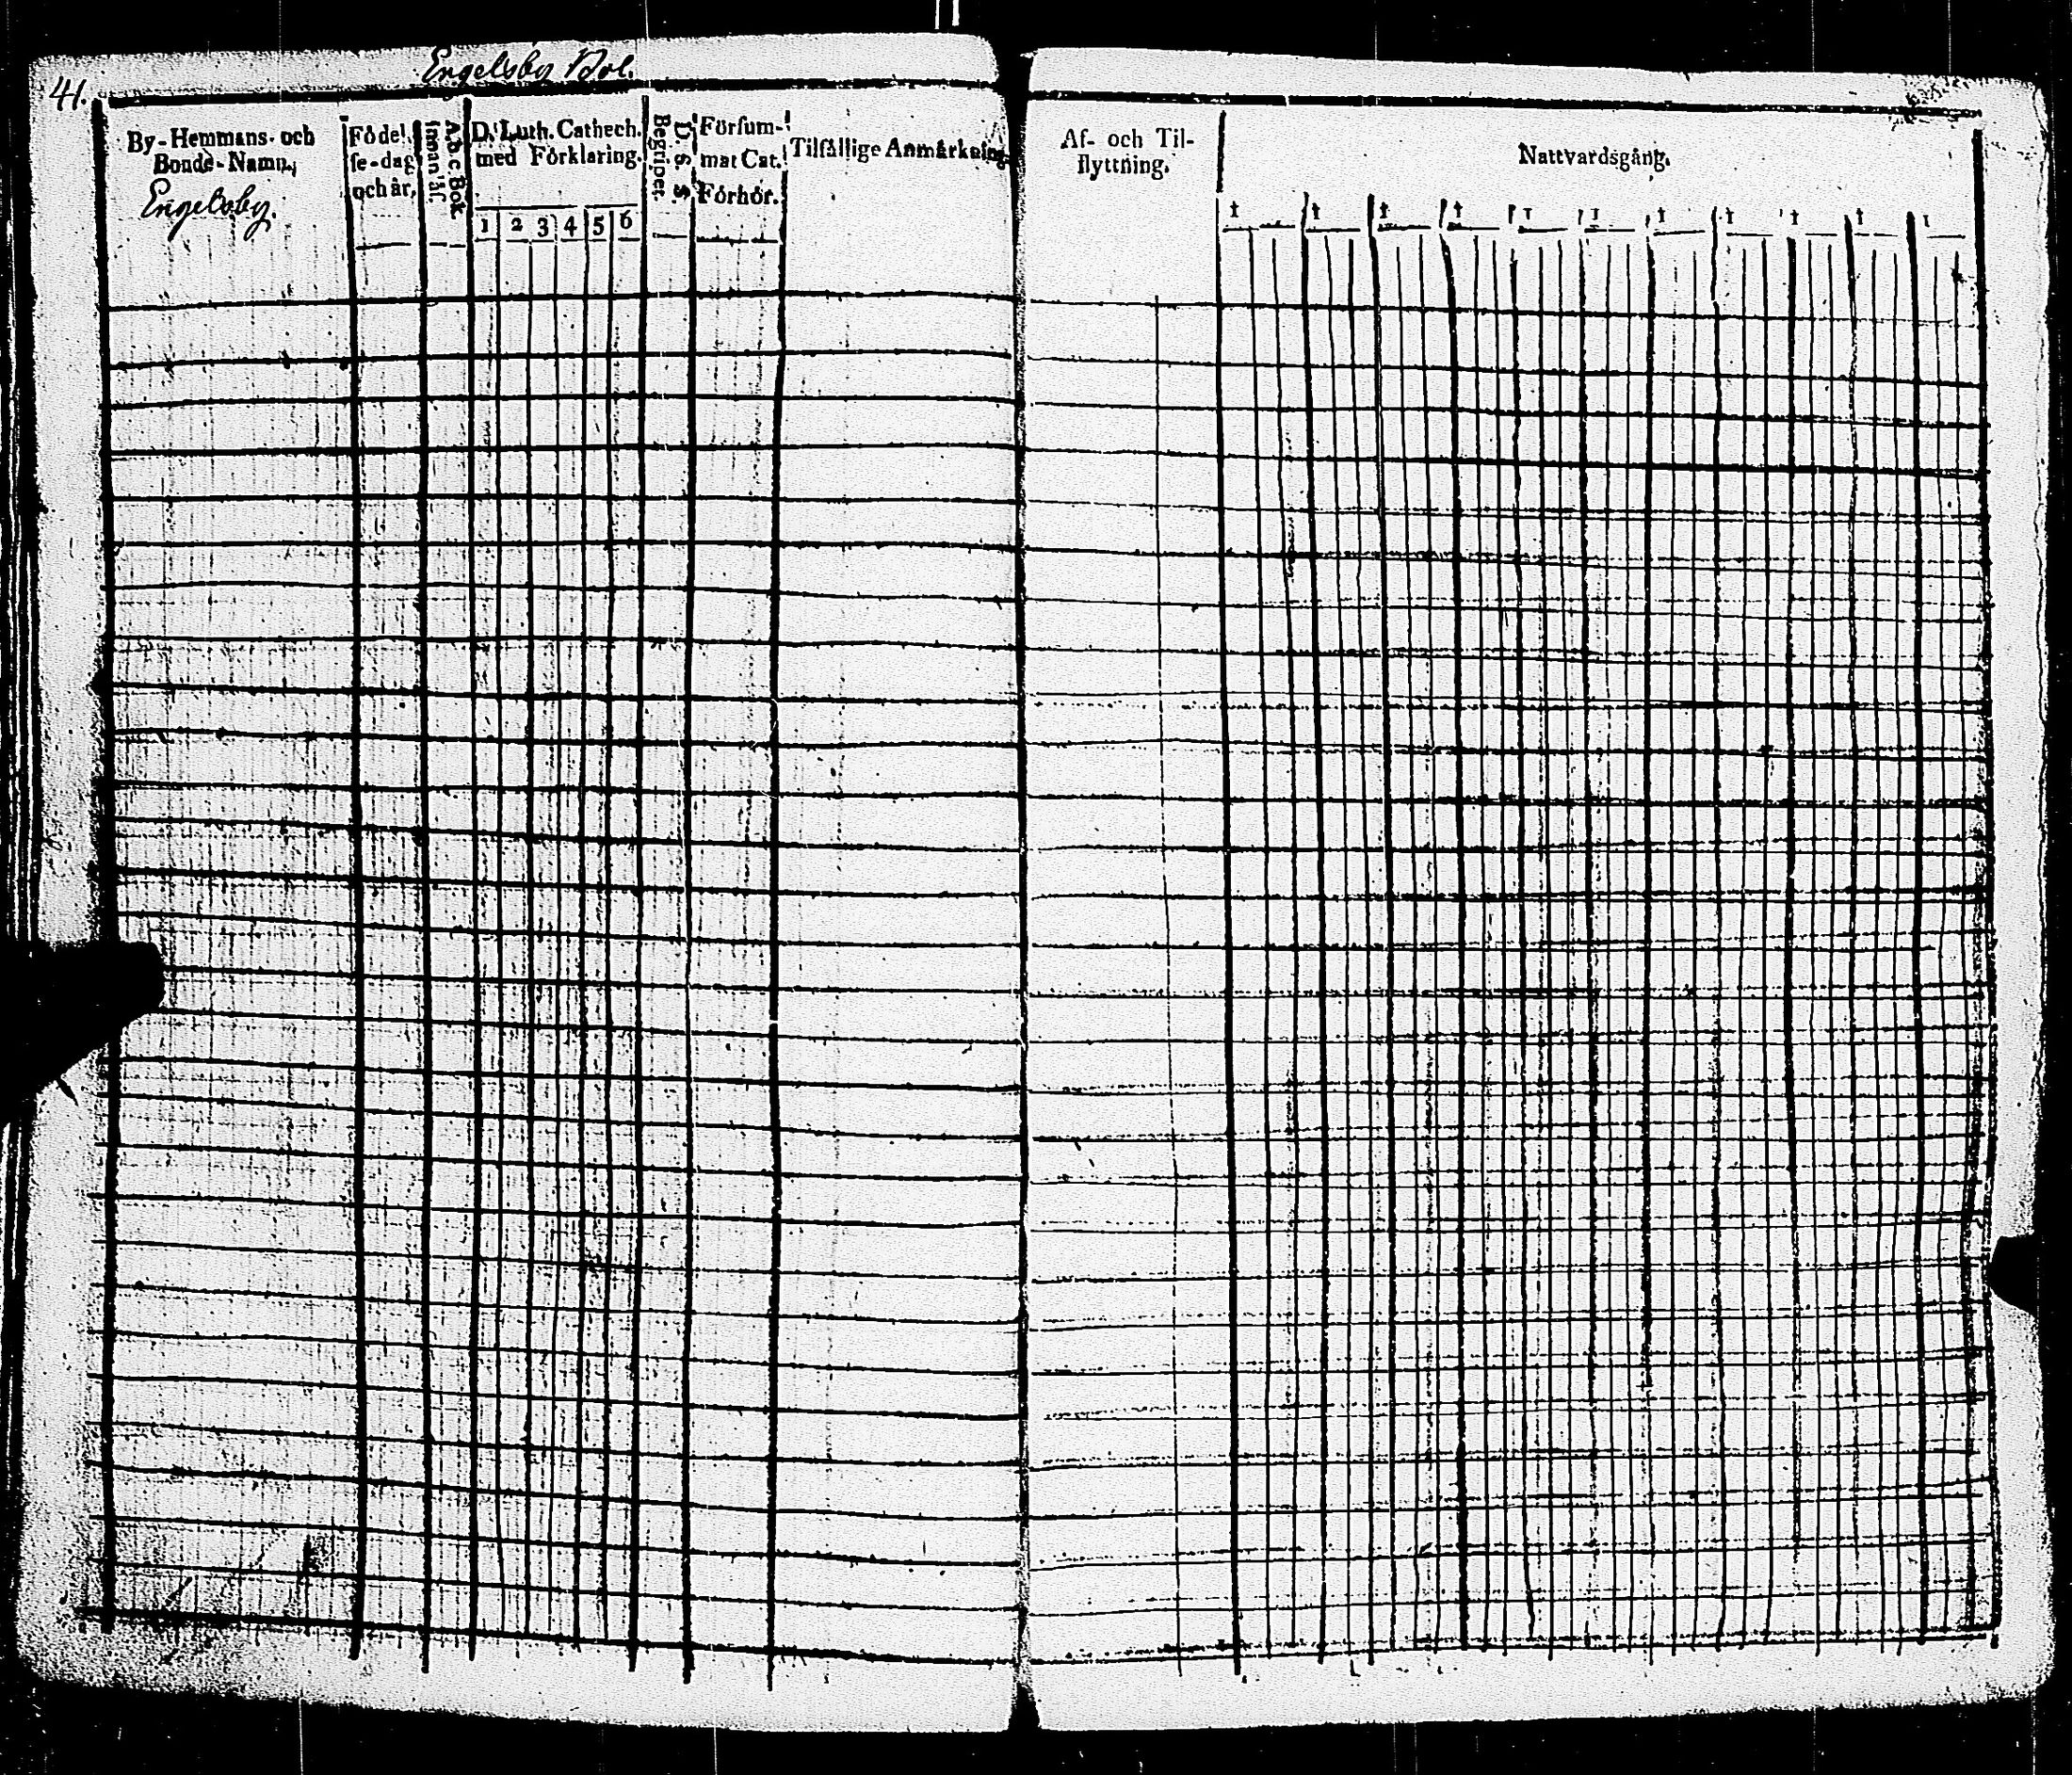 Engelsby Bol.
41.
By-Hemmans- och
Bonde-Namn.
Engelsby.
Födel-
se-dag
och år.
Abc Bok
innan äf.
D. Luth. Cathech.
med Förklaring.
1 2 3 4 5 6
D. S. S.
Begriper.
Försum-
mat Cat.
Förhör.
Tilfällige Anmärkning.
Af- och Til-
flyttning.
Nattvardsgång.
1 1 1 1 1 1 1 1 1 1 1